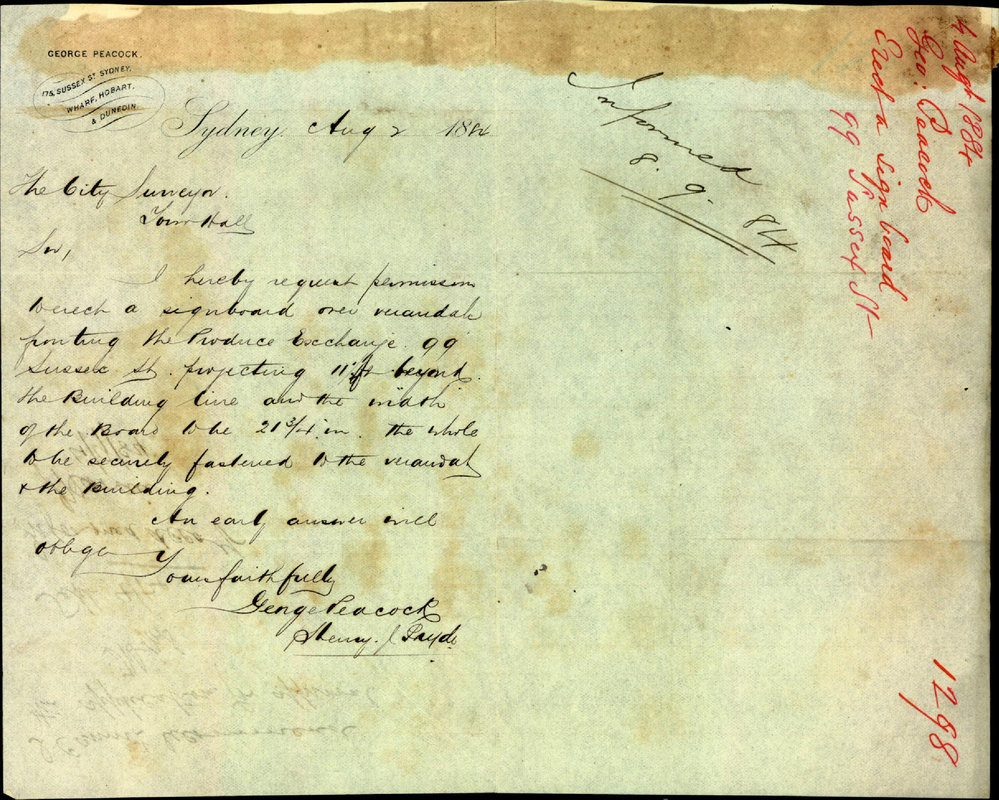 GEORGE PEACOCK.
175, SUSSEX ST. SYDNEY,
WHARF, HOBART,
& DUNEDIN
Sydney Aug 2 1884
The City Surveyor
Town Hall
Sir,
I hereby request permission
to erect a signboard over verandah
fronting the Produce Exchange 99
Sussex St. projecting 11 ft beyond
the Building line and the width
of the Board to be 21 3/4 in. the whole
to be securely fastened to the verandah
& the Building.
An early answer will
oblige
Yours faithfully
George Peacock
Henry J
Informed
8. 9. 84
4 Augt 1884
Geo: Peacock
Erect a sign board
99 Sussex St
1288